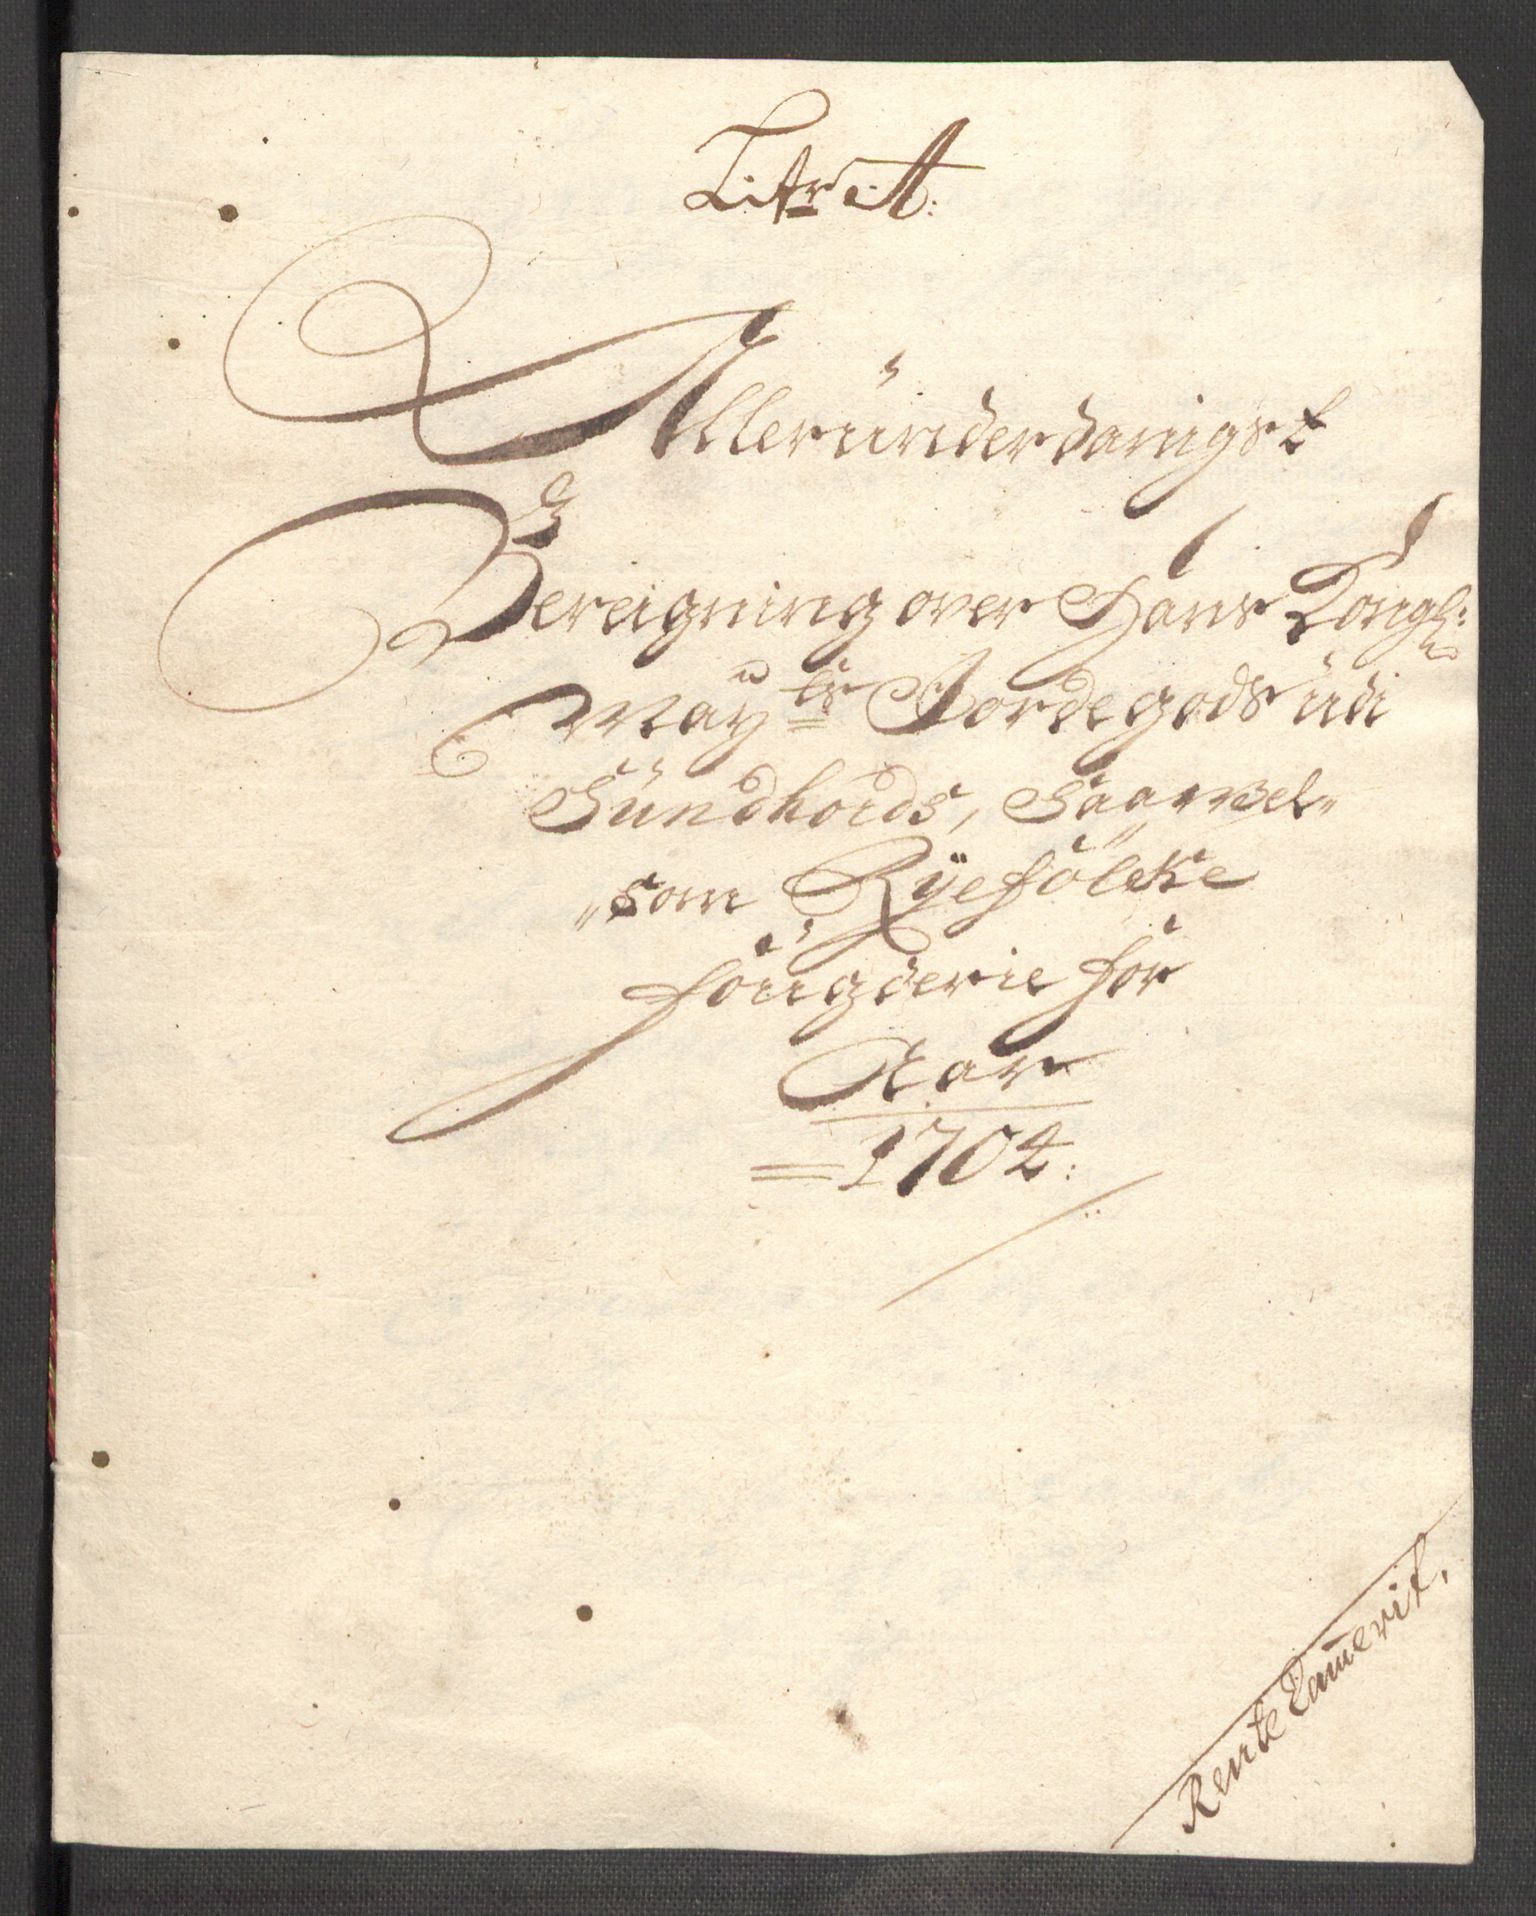 Litr: A:
Alleründerdanigst
Bereigning over Hans Kongl:
May:ts Jordegods üdi
Sündhords, Saavel-
-som Ryefölcke
fougderie for
Aar
1704:
Rente Cammerit.